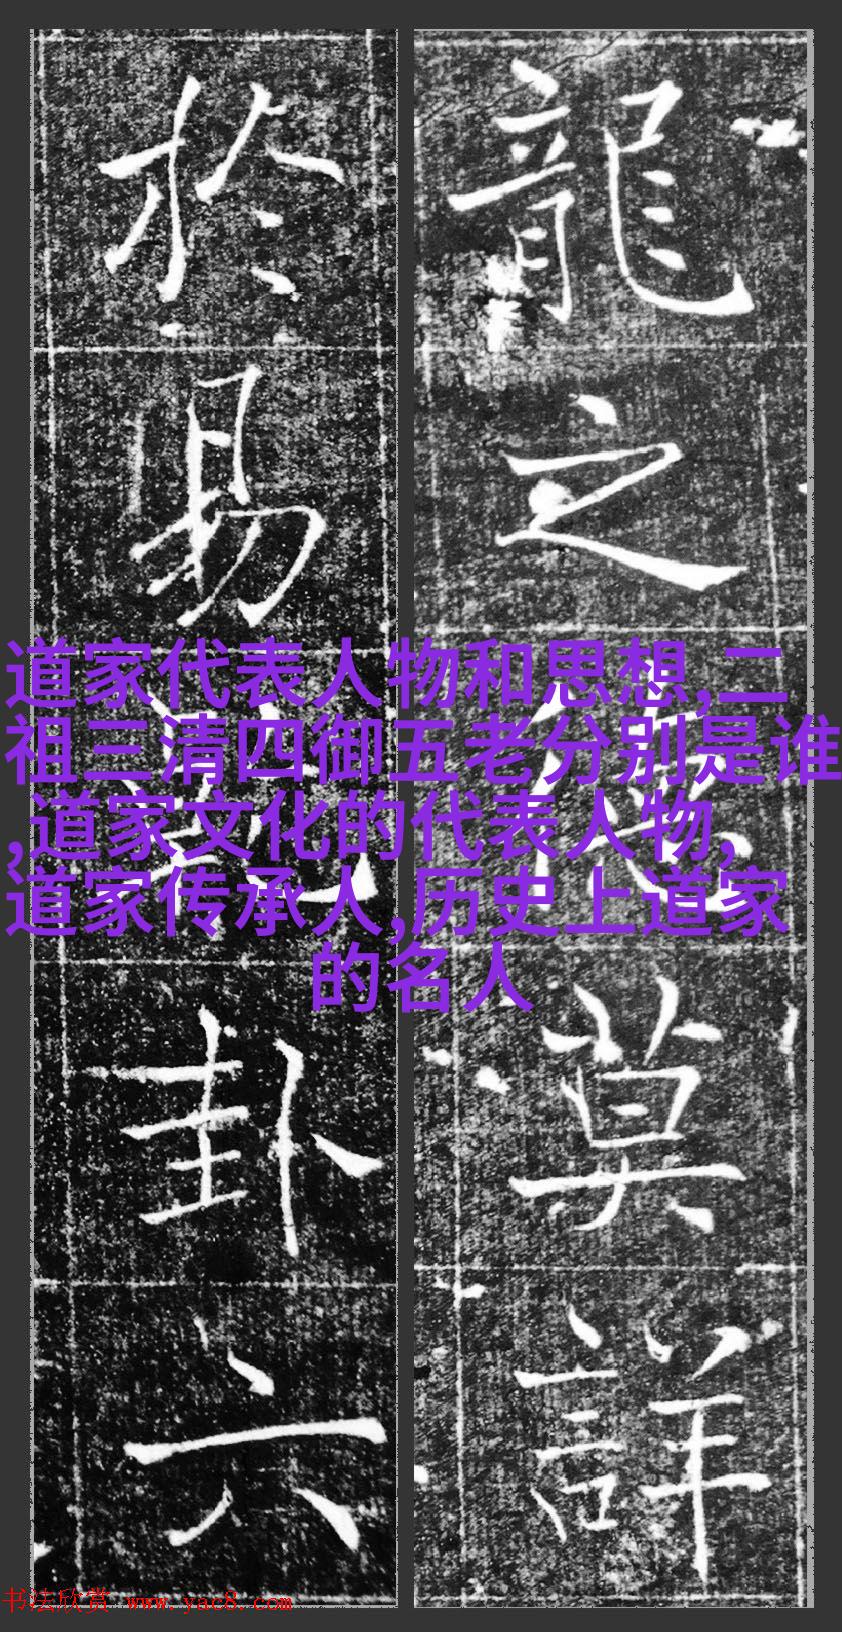 龍之
莫詳
於易
卦六
道家代表人物和思想,二
祖三清四御五老分别是谁
,道家文化的代表人物,
道家传承人,历史上道家
的名人
书法欣赏 www.yac8.com